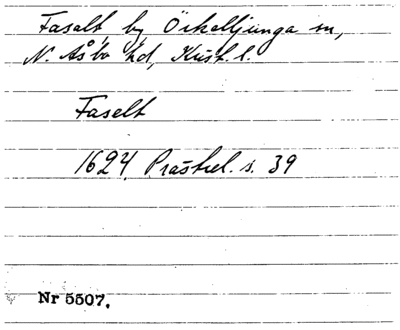 Faselt by Örkelljunga sn,
N. Åsbo hd, Krist. l.
Faselt
1624 Prästrel. s. 39
Nr 5507.